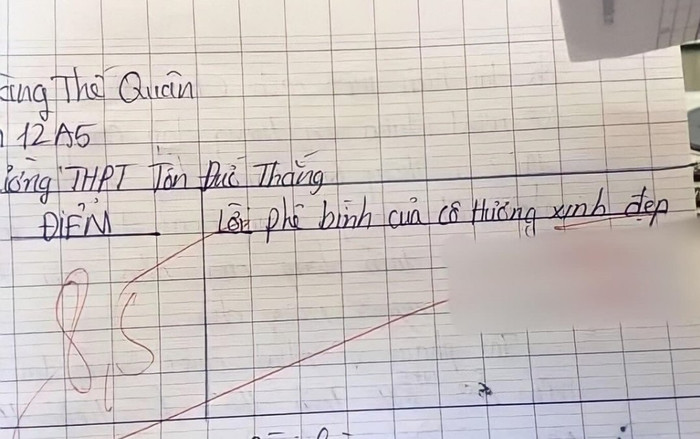 Thế Quân
12A5
THPT Tôn Đức Thắng
ĐIỂM
Lời phê bình của cô Hường xinh đẹp
8,5